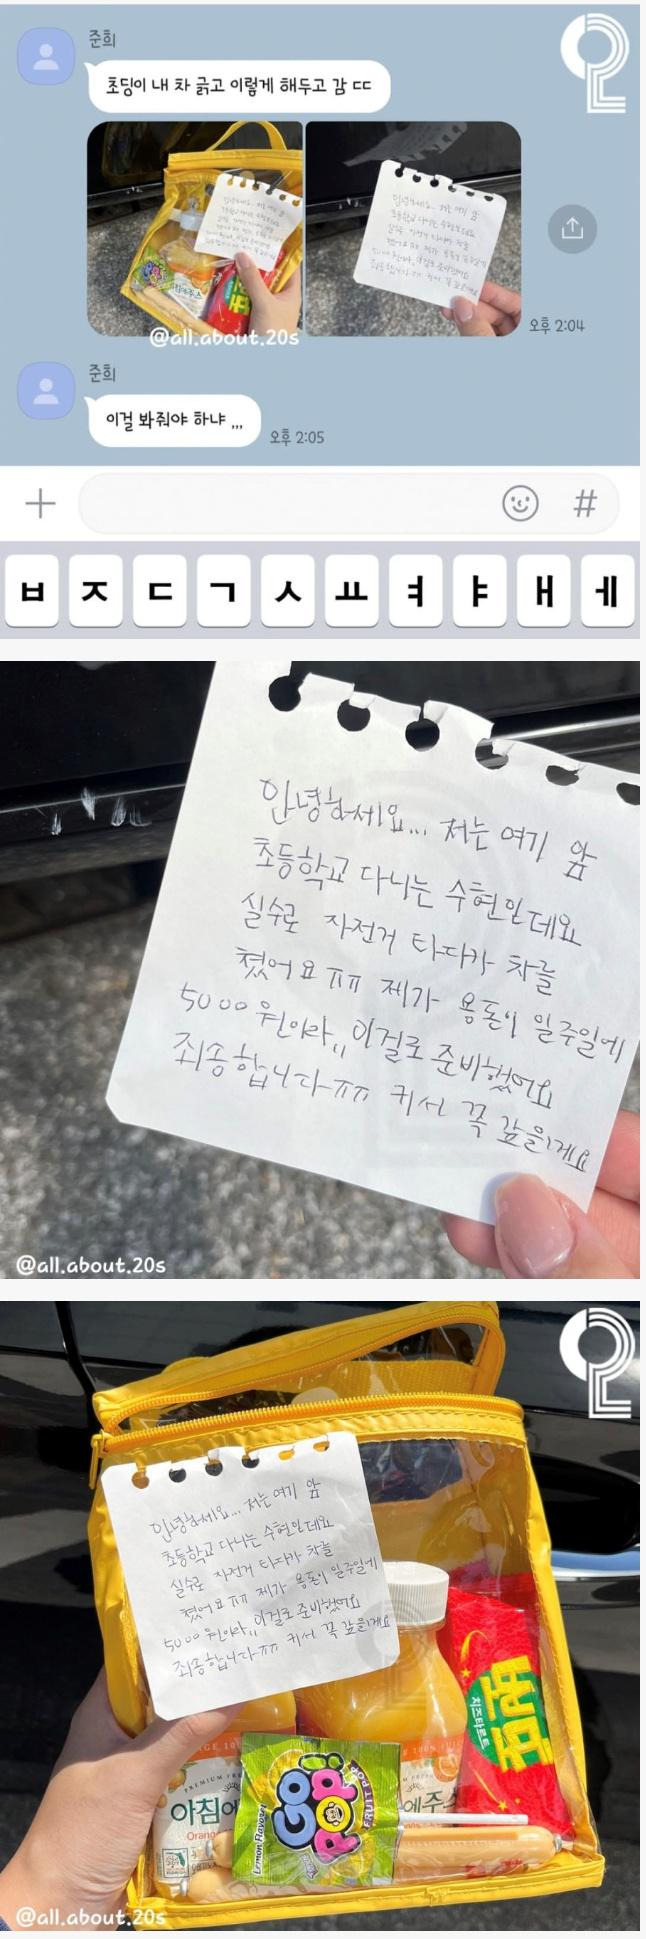 준희
초딩이 내 차 긁고 이렇게 해두고 감 ㄷㄷ
@all.about.20s
오후 2:04
준희
이걸 봐줘야 하냐 ,,,
오후 2:05
#
ㅂ ㅈ ㄷ ㄱ ㅅ ㅛ ㅕ ㅑ ㅐ ㅔ
안녕하세요... 저는 여기 앞
초등학교 다니는 수현인데요
실수로 자전거 타다가 차를
쳤어요ㅠㅠ 제가 용돈이 일주일에
5000원이라,, 이걸로 준비했어요
죄송합니다ㅠㅠ 커서 꼭 갚을게요
@all.about.20s
안녕하세요... 저는 여기 앞
초등학교 다니는 수현인데요
실수로 자전거 타다가 차를
쳤어요ㅠㅠ 제가 용돈이 일주일에
5000원이라,, 이걸로 준비했어요
죄송합니다ㅠㅠ 커서 꼭 갚을게요
치즈타르트
PREMIUM
아침에
Orange
에주스
100%
Lemon Flavored
GO
POP!
FRUIT POP
@all.about.20s